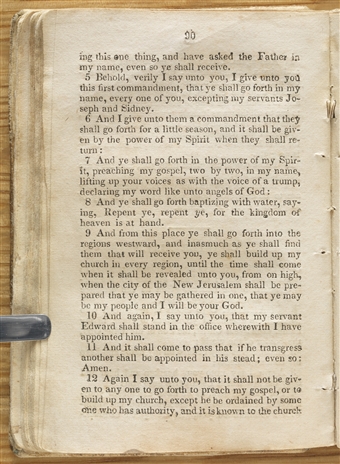 90
ing this one thing, and have asked the Father in
my name, even so ye shall receive.
5 Behold, verily I say unto you, I give unto you
this first commandment, that ye shall go forth in my
name, every one of you, excepting my servants Jo-
seph and Sidney.
6 And I give unto them a commandment that they
shall go forth for a little season, and it shall be giv-
en by the power of my Spirit when they shall re-
turn:
7 And ye shall go forth in the power of my Spir-
it, preaching my gospel, two by two, in my name,
lifting up your voices as with the voice of a trump,
declaring my word like unto angels of God:
8 And ye shall go forth baptizing with water, say-
ing, Repent ye, repent ye, for the kingdom of
heaven is at hand.
9 And from this place ye shall go forth into the
regions westward, and inasmuch as ye shall find
them that will receive you, ye shall build up my
church in every region, until the time shall come
when it shall be revealed unto you, from on high,
when the city of the New Jerusalem shall be pre-
pared that ye may be gathered in one, that ye may
be my people and I will be your God.
10 And again, I say unto you, that my servant
Edward shall stand in the office wherewith I have
appointed him.
11 And it shall come to pass that if he transgress
another shall be appointed in his stead; even so:
Amen.
12 Again I say unto you, that it shall not be giv-
en to any one to go forth to preach my gospel, or to
build up my church, except he be ordained by some
one who has authority, and it is known to the church